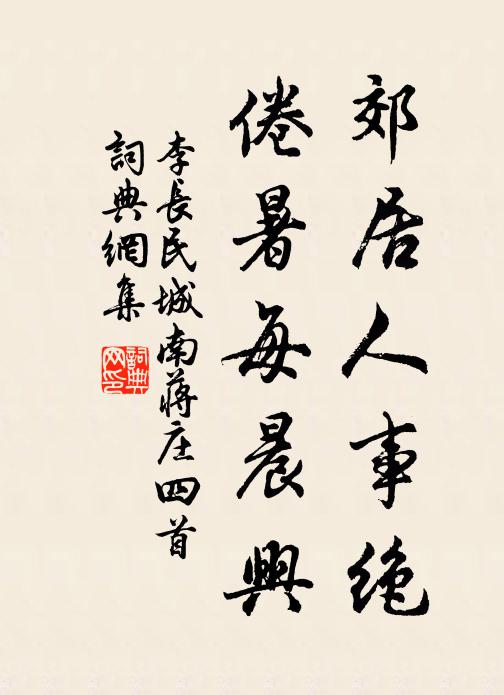 郊居人事絶
倦暑每晨興
李長民城南蔣庄四首
詞典網集
詞典网印